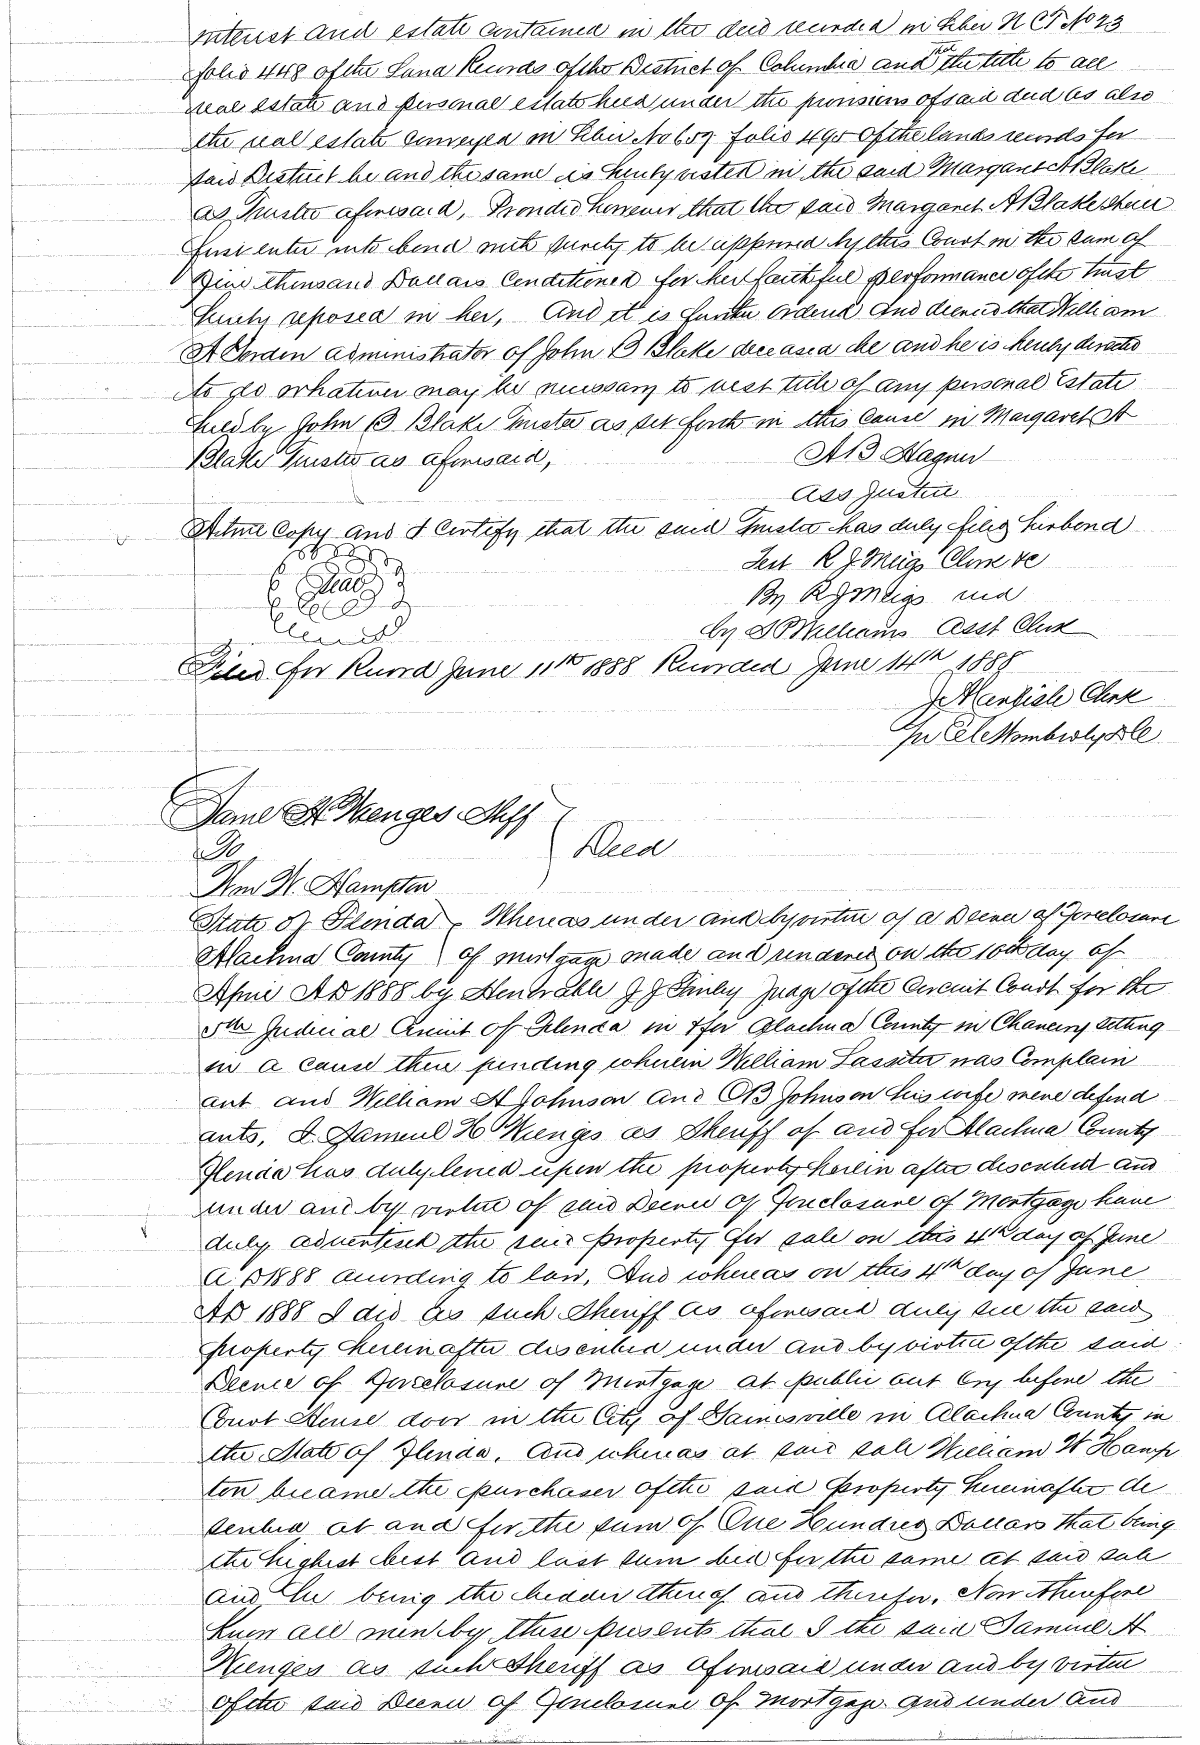 interest and estate contained in the deed recorded in Liber N C T No 23
folio 448 of the Land Records of the District of Columbia and that the title to all
real estate and personal estate held under the provisions of said deed as also
the real estate conveyed in Liber No 659 folio 495 of the lands records for
said District be and the same is hereby vested in the said Margaret A Blake
as Trustee aforesaid, Provided however that the said Margaret A Blake shall
first enter into bond with surety to be approved by this Court in the sum of
Five thousand Dollars Conditioned for her faithful performance of the trust
hereby reposed in her, And it is further ordered and decreed that William
A Gordon administrator of John B Blake deceased be and he is hereby directed
to do whatever may be necessary to vest title of any personal Estate
held by John B Blake Trustee as set forth in this cause in Margaret A
Blake Trustee as aforesaid,
A B Hagner
Ass Justice
A true Copy and I Certify that the said Trustee has duly filed her bond
Test R J Meigs Clerk &c
Seal
By R J Meigs
by Williams Asst Clerk
Filed for Record June 11th 1888 Recorded June 14th 1888
Clerk
Samel H Wienges Shff
To
Deed
Wm W. Hampton
State of Florida } Whereas under and by virtue of a Decree of Foreclosure
Alachua County } of mortgage made and rendered on the 10th day of
April AD 1888 by Honorable J J Finley Judge of the Circuit Court for the
5th Judicial Circuit of Florida in & for Alachua County in Chancery sitting
in a cause then pending wherein William Lassiter was Complain
ant and William A Johnson and C B Johnson his wife were defend
ants, I Samuel H Wienges as Sheriff of and for Alachua County
Florida has duly levied upon the property herein after described and
under and by virtue of said Decree of Foreclosure of Mortgage have
duly advertised the said property for sale on this 4th day of June
A D 1888 according to law, And whereas on this 4th day of June
AD 1888 I did as such Sheriff as aforesaid duly sell the said
property hereinafter described under and by virtue of the said
Decree of Foreclosure of Mortgage at public out cry before the
Court House door in the City of Gainesville in Alachua County in
the State of Florida, And whereas at said sale William W Hamp
ton became the purchaser of the said property hereinafter de
scribed at and for the sum of One Hundred Dollars that being
the highest best and last sum bid for the same at said sale
and he being the bidder thereof and therefor, Now therefore
know all men by these presents that I the said Samuel H
Wienges as such Sheriff as aforesaid under and by virtue
of the said Decree of Foreclosure of Mortgage and under and